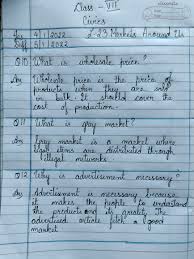 Class - VII
Civics
4/1/2022 L-23 Markets Around Us
5/1/2022
Q10 What is wholesale price?
Ans Wholesale price is the price of
products when they are sold
in bulk. It should cover the
cost of production.
Q11 What is gray market?
Ans Gray market is a market where
legal items are distributed through
illegal networks.
Q12 Why is advertisement necessary?
Ans Advertisement is necessary because
it makes the people to understand
the products and its quality. The
advertised article fetch a good
market.